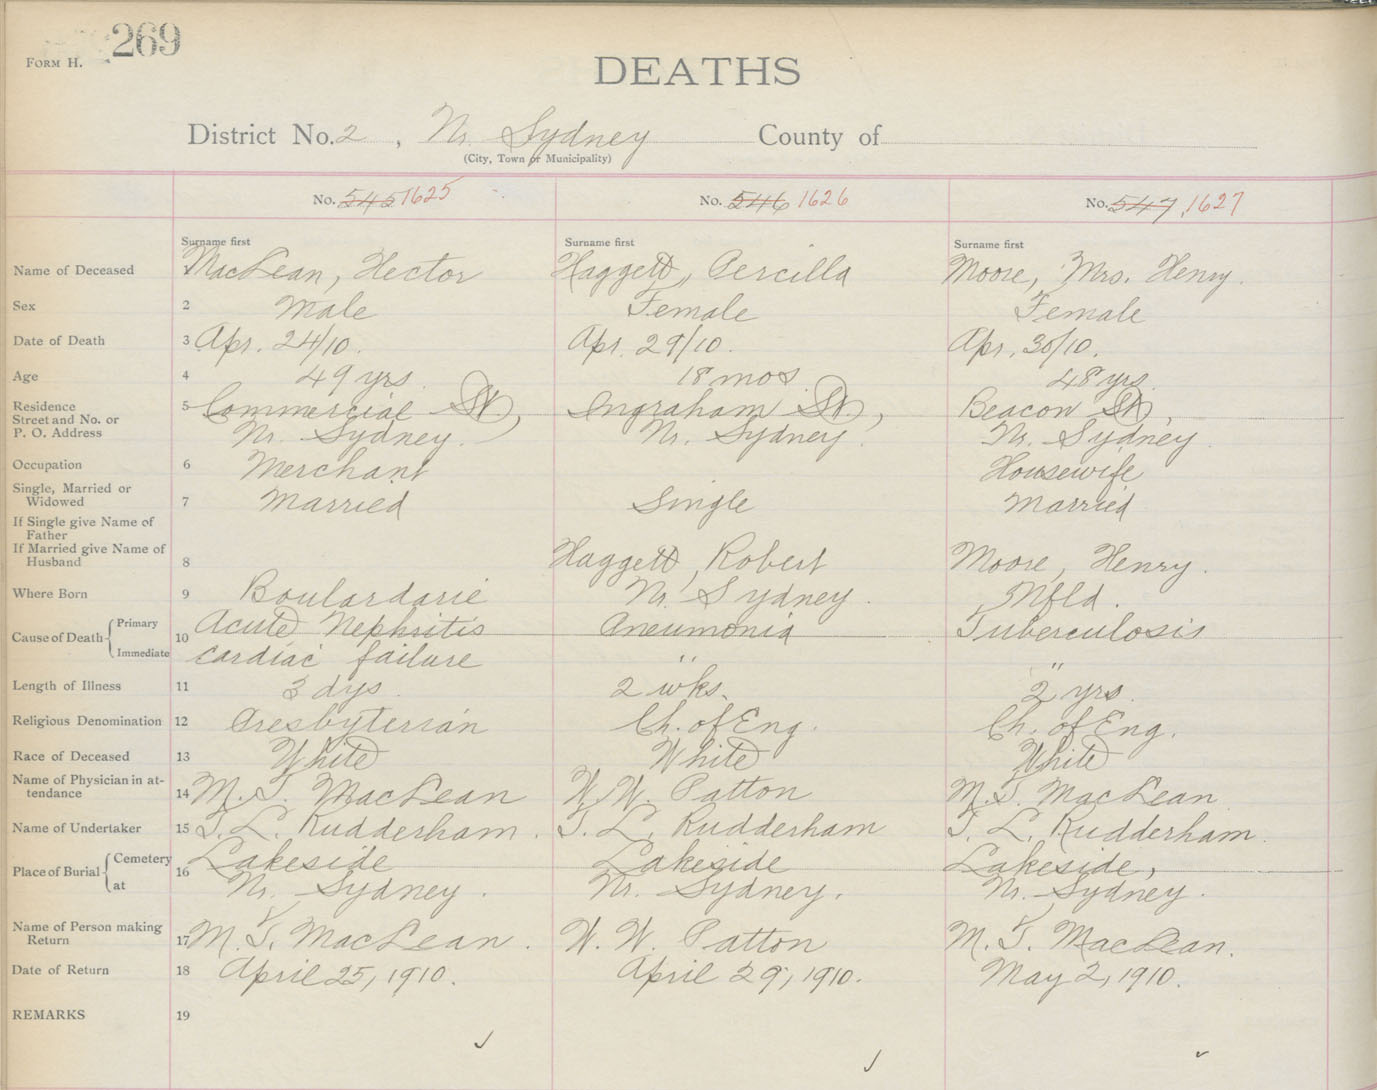 269
FORM H.
DEATHS
District No. 2, Nr. Sydney County of
(City, Town or Municipality)
No. 545 1625 No. 546 1626 No. 547 1627
Surname first Surname first Surname first
Name of Deceased 1 MacLean, Hector Haggett, Percilla Moore, Mrs. Henry.
Sex 2 Male Female Female
Date of Death 3 Apr. 24/10. Apr. 29/10. Apr. 30/10.
Age 4 49 yrs. 18 mos 48 yrs.
Residence 5 Commercial St, Ingraham St., Beacon St,
Street and No. or
P. O. Address Nr. Sydney. Nr. Sydney. Nr. Sydney.
Occupation 6 Merchant Housewife
Single, Married or
Widowed 7 Married Single Married
If Single give Name of
Father
If Married give Name of
Husband 8 Haggett, Robert Moore, Henry.
Where Born 9 Boulardarie Nr. Sydney. Nfld.
Cause of Death Primary 10 Acute Nephritis Pneumonia Tuberculosis
Immediate cardiac failure " "
Length of Illness 11 3 dys. 2 wks. 2 yrs.
Religious Denomination 12 Presbyterian Ch. of Eng. Ch. of Eng.
Race of Deceased 13 White White White
Name of Physician in at-
tendance 14 M. T. MacLean W. W. Patton M. T. MacLean
Name of Undertaker 15 T. L. Rudderham. T. L. Rudderham T. L. Rudderham.
Place of Burial Cemetery 16 Lakeside Lakeside Lakeside,
at Nr. Sydney. Nr. Sydney. Nr. Sydney.
Name of Person making
Return 17 M. T. MacLean. W. W. Patton M. T. MacLean.
Date of Return 18 April 25, 1910. April 29, 1910. May 2, 1910.
REMARKS 19